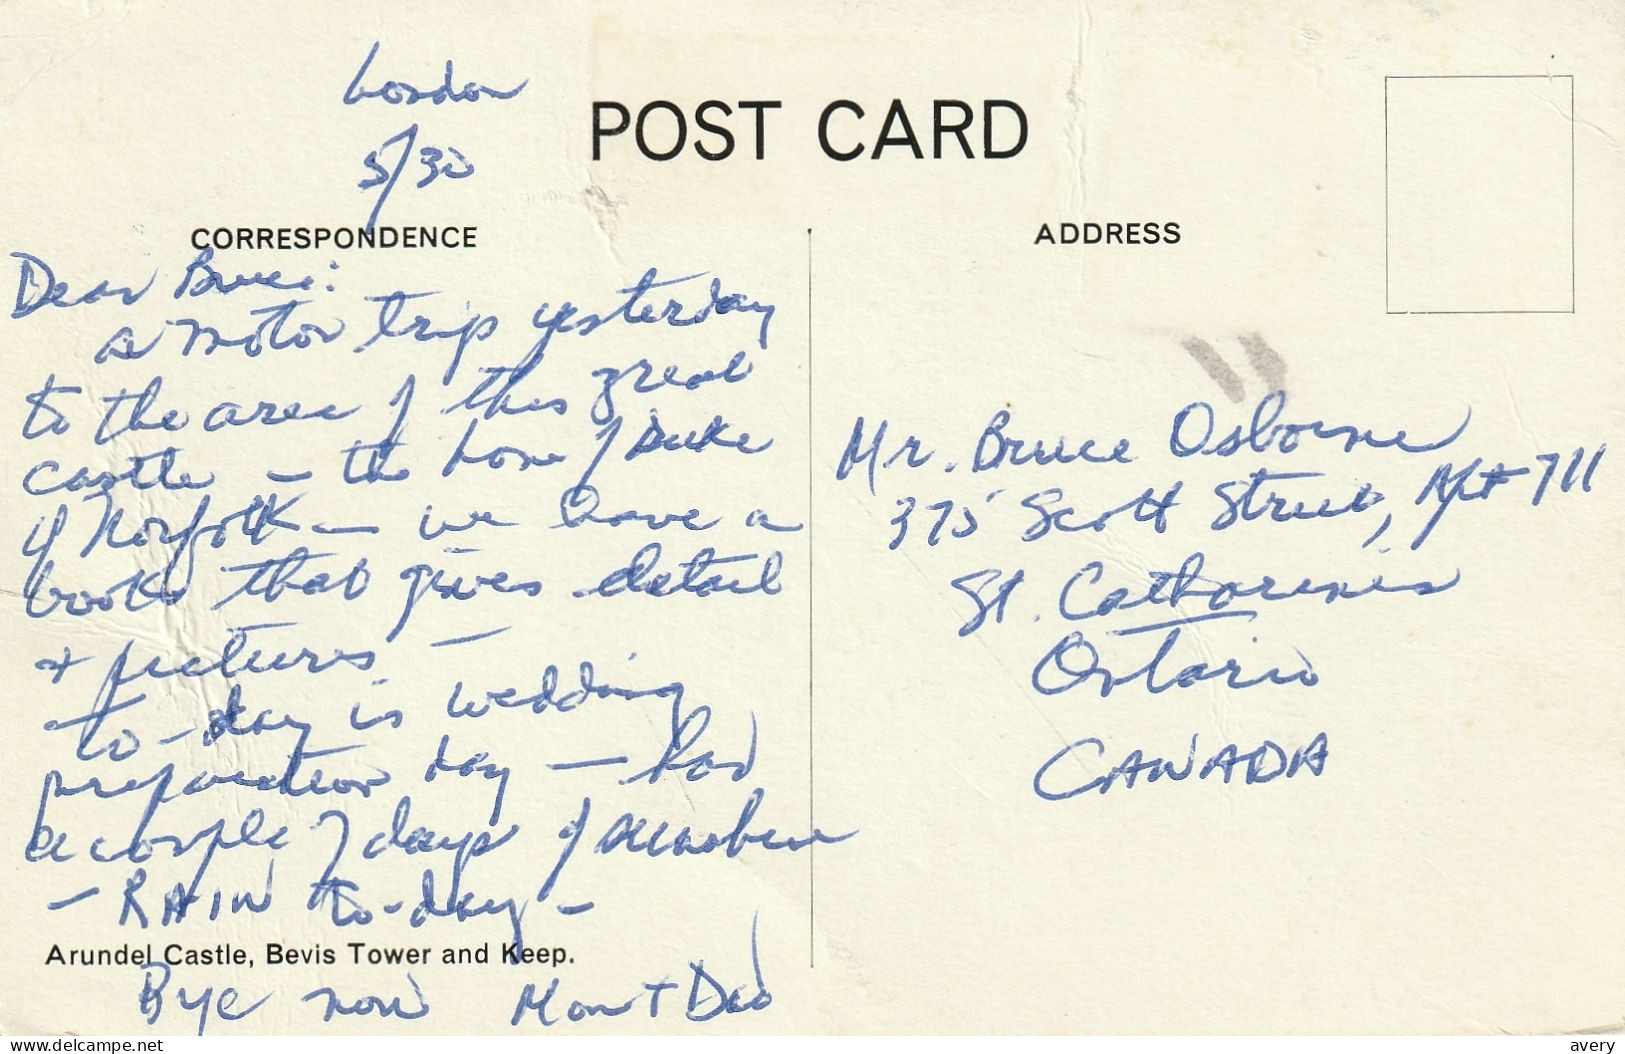 London
5/30
POST CARD
CORRESPONDENCE
ADDRESS
Dear Bruce:
a motor trip yesterday
to the area of this great
castle – the home of Duke
of Norfolk – we have a
book that gives detail
+ pictures –
to-day is wedding
preparation day – had
a couple of days of
– RAIN to-day –
Arundel Castle, Bevis Tower and Keep.
Bye now Mom + Dad
Mr. Bruce Osborne
375 Scott Street, Apt 711
St. Catharines
Ontario
CANADA
www.delcampe.net
avery